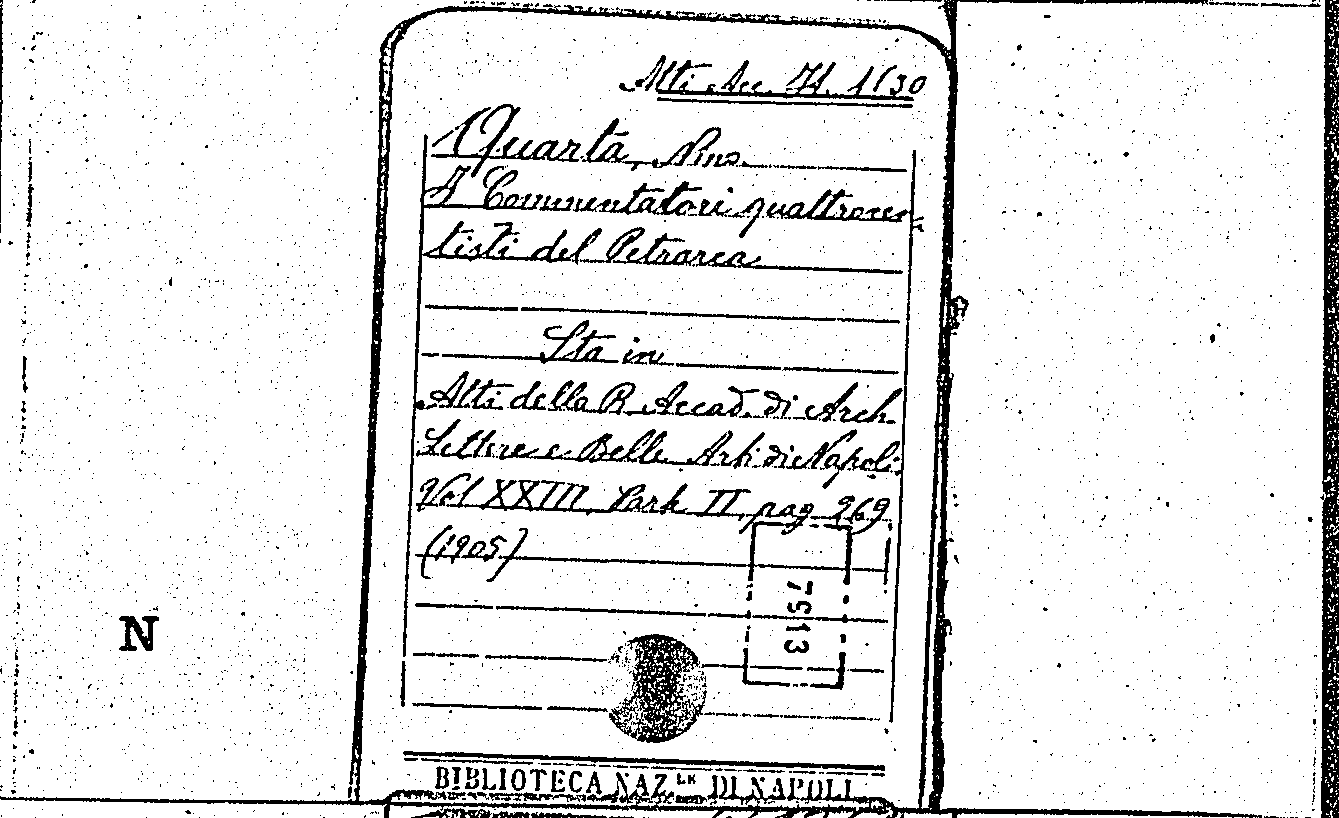 Atti Acc. It. 1(30
Quarta, Nino.
I Commentatori quattrocen-
tisti del Petrarca
Sta in
Atti della R Accad. di Arch.
Lettere e Belle Arti di Napoli.
Vol XXIII, Parte II, pag 269
(1905)
7513
N
BIBLIOTECA NAZ.LE DI NAPOLI